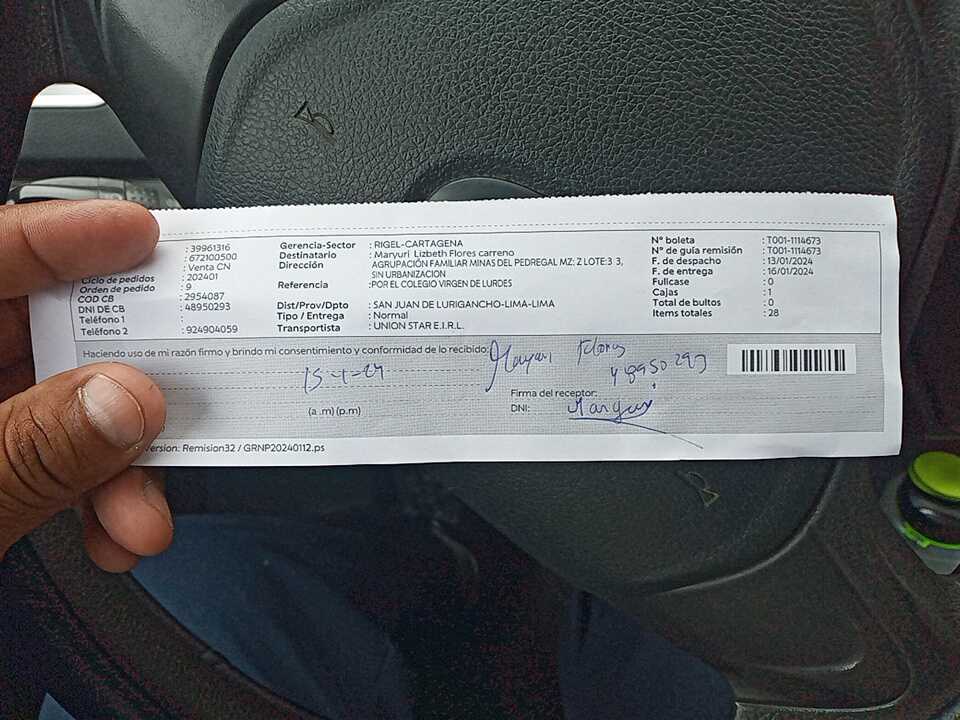 : 39961316
: 672100500
: Venta CN
Ciclo de pedidos : 202401
Orden de pedido : 9
COD CB : 2954087
DNI DE CB : 48950293
Teléfono 1 :
Teléfono 2 : 924904059
Gerencia-Sector : RIGEL-CARTAGENA
Destinatario : Maryuri Lizbeth Flores carreno
Dirección : AGRUPACIÓN FAMILIAR MINAS DEL PEDREGAL MZ: Z LOTE:3 3,
SIN URBANIZACION
Referencia : POR EL COLEGIO VIRGEN DE LURDES
Dist/Prov/Dpto : SAN JUAN DE LURIGANCHO-LIMA-LIMA
Tipo / Entrega : Normal
Transportista : UNION STAR E.I.R.L.
N° boleta : T001-1114673
N° de guía remisión : T001-1114673
F. de despacho : 13/01/2024
F. de entrega : 16/01/2024
Fullcase : 0
Cajas : 1
Total de bultos : 0
Items totales : 28
Haciendo uso de mi razón firmo y brindo mi consentimiento y conformidad de lo recibido:
Flores
48950293
15-1-24
(a .m) (p.m)
Firma del receptor:
DNI:
version: Remision32 / GRNP20240112.ps